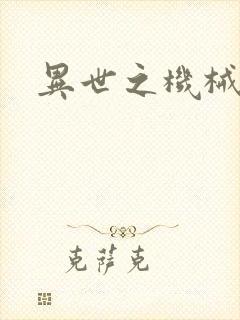 異世之機械
克薩克